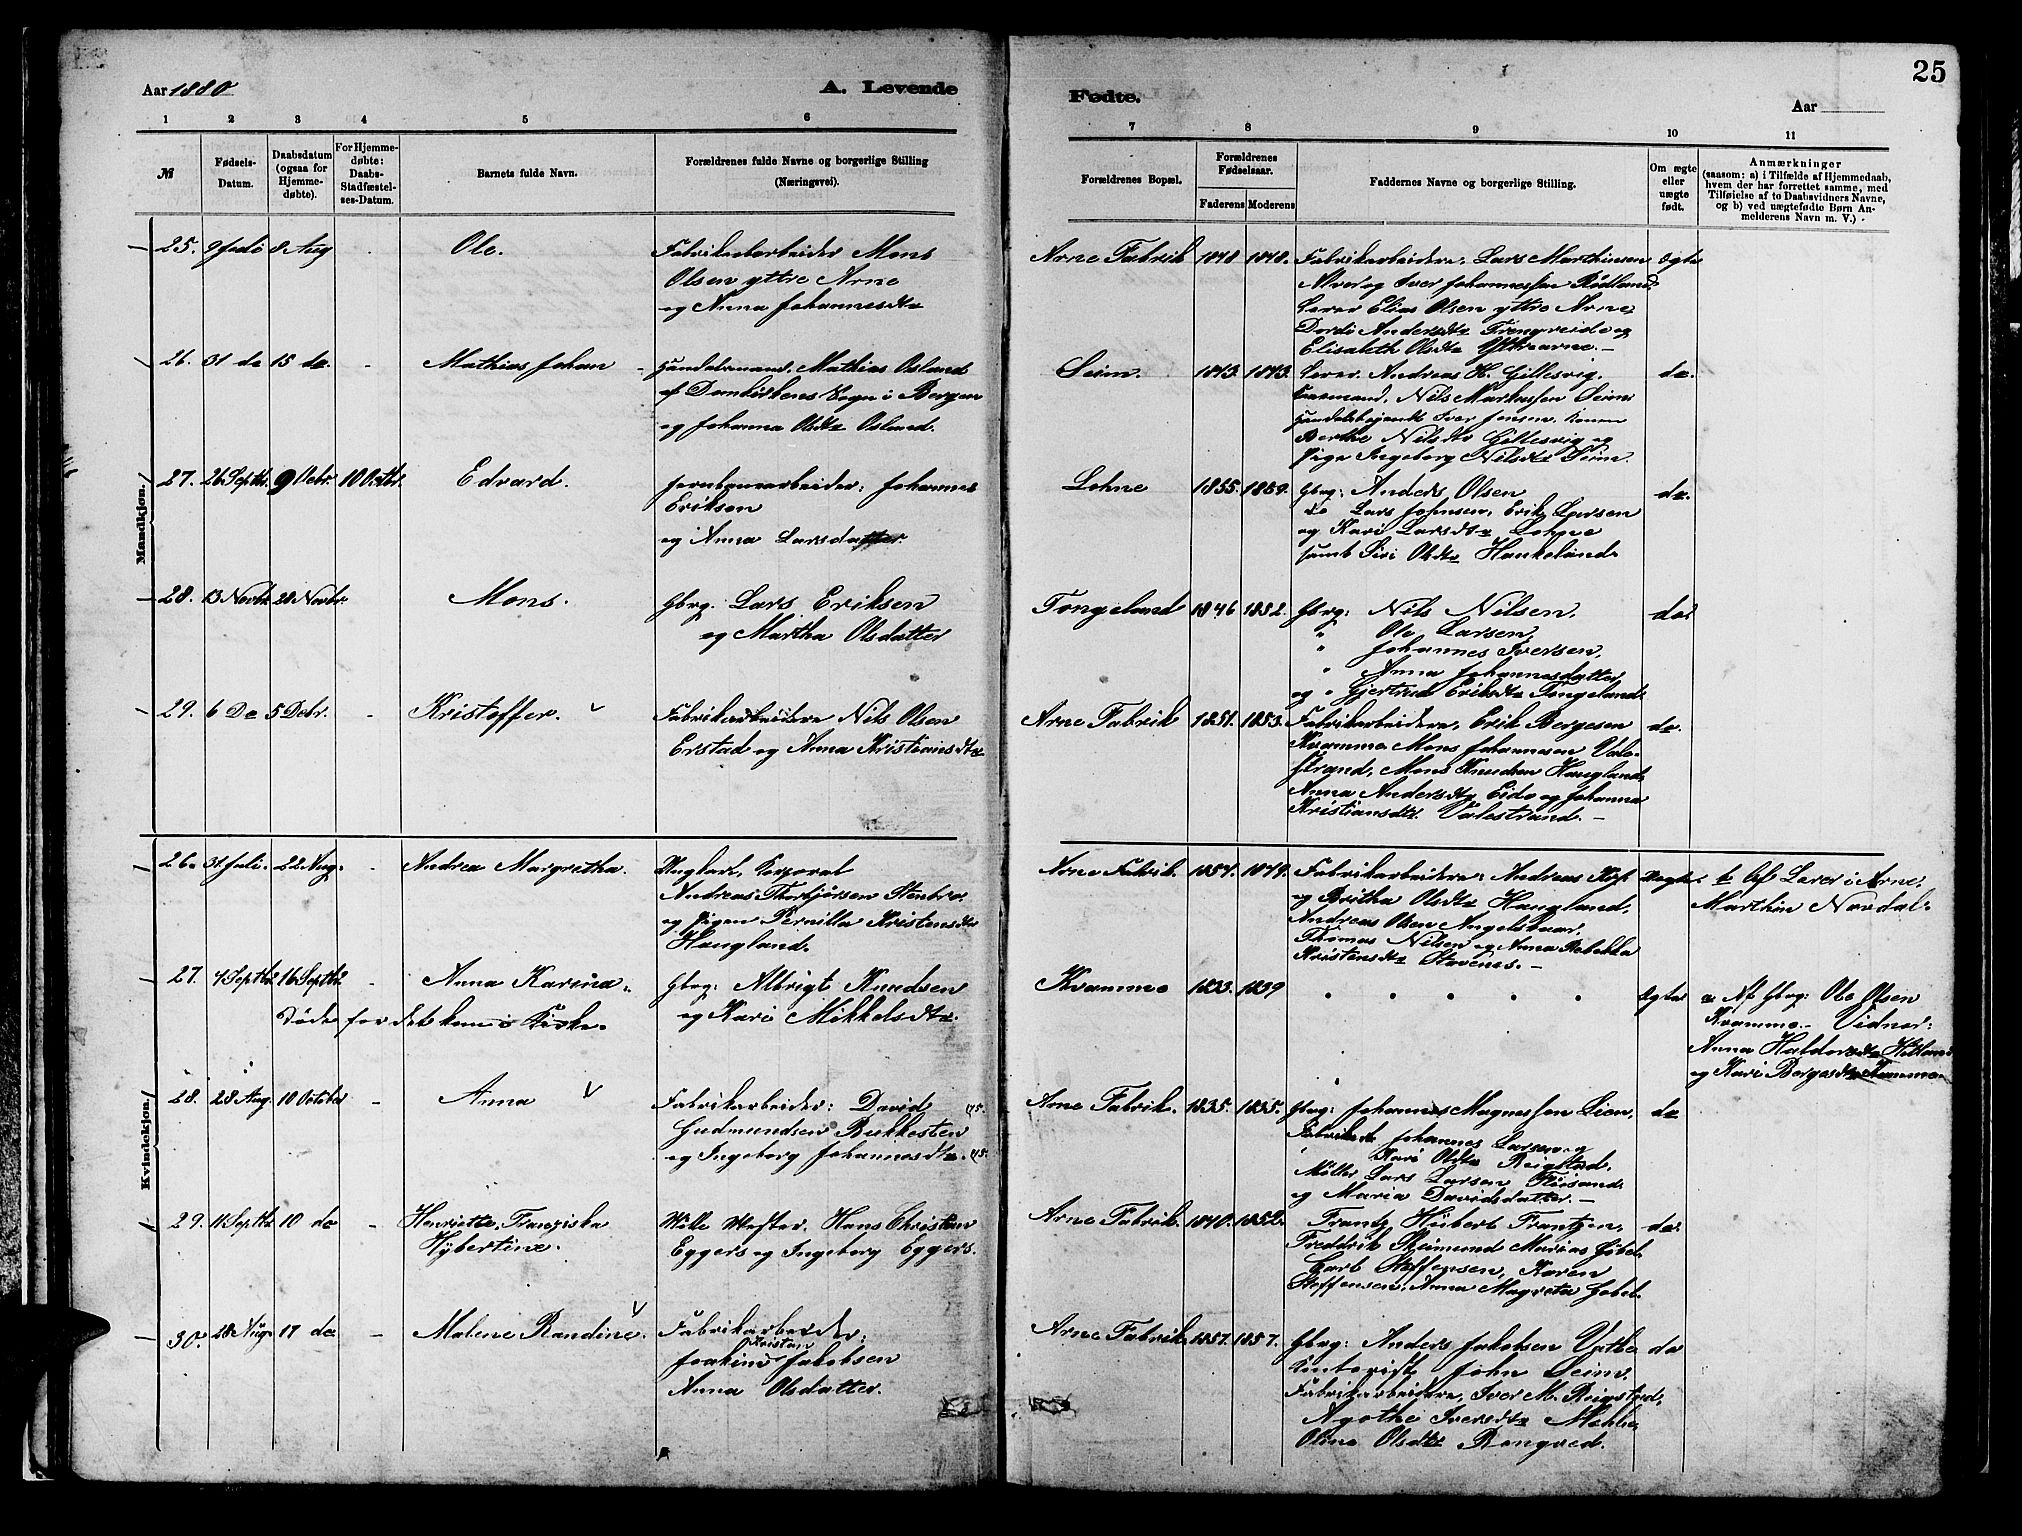 25
Aar 1880
A. Levende
Fødte.
Aar
1 2 3 4 5 6 7 8 9 10 11
№
Fødsels-
Datum.
Daabsdatum
(ogsaa for
Hjemme-
døbte).
For Hjemme-
døbte:
Daabs-
Stadfæstel-
ses-Datum.
Barnets fulde Navn.
Forældrenes fulde Navne og borgerlige Stilling
(Næringsvei).
Forældrenes Bopæl.
Forældrenes
Fødselsaar.
Faderens Moderens
Faddernes Navne og borgerlige Stilling.
Om ægte
eller
uægte
født.
Anmærkninger
(saasom: a) i Tilfælde af Hjemmedaab,
hvem der har forrettet samme, med
Tilføielse af to Daabsvidners Navne,
og b) ved uægtefødte Børn An-
melderens Navn m. V.)
Mandkjøn.
25. 9 Juli 8 Aug Ole.
Fabrikarbeider Mons
Olsen yttre Arne
og Anna Johannesdtr
Arne Fabrik 1848 1848.
Fabrikarbeidere, Lars Marthinsen
Alver og Iver Johannessen Rødland,
Lærer Elias Olsen yttre Arne,
Dordi Andersdtr Trengreide og
Elisabeth Olsdtr Yttrearne.
Ægte
26. 31 do 15 do. - Mathias Johan
Handelsmand, Mathias Osland
af Domkirkens Sogn i Bergen
og Johanna Olsdtr Osland.
Seim. 1843. 1843.
Lærer Andreas H. Gillesvig,
Nils Markussen Seim
Handelsbetjent Iver Jensen, Konen
Berthe Nilsdtr Gillesvig og
Pige Ingeborg Nilsdtr Seim.
do.
27. 26 Septbr. 9 Octbr. 10 Octbr. Edvard.
Jernbanearbeider: Johannes
Erikson
og Anna Larsdatter.
Lohne 1855. 1859.
Gbrg: Anders Olsen
do Lars Johnsen, Erik Larsen
og Kari Larsdtr Lohne
samt Siri Olsdtr Haukeland.
do.
28. 13 Novbr. 28 Novbr. Mons.
Gbrg: Lars Eriksen
og Martha Olsdatter
Tongeland 1846 1852.
Gbrg: Nils Nilsen,
" Ole Larsen,
" Johannes Iversen,
" Anna Johannesdatter
og " Gjertrud Eriksdtr Tongeland.
do.
29. 6 Do 5 Debr. - Kristoffer.
Fabrikarbeidere Nils Olsen
Erstad og Anna Kristiansdtr
Arne Fabrik 1851. 1853.
Fabrikarbeidere, Erik Bergesen
Kvamme Mons Johannesen Vale-
strand, Mons Knudsen Haugland,
Anna Andersdtr Eide og Johanna
Kristiansdtr. Valestrand.
do.
Kvindekjøn.
26. 31 Juli. 22 Aug. - Andrea Margretha.
Ungkarl, Korporal
Andreas Thorbjørsen Stenbro.
og Pigen Pernilla Kristensdtr
Haugland.
Arne Fabrik. 1854. 1849.
Fabrikarbeidere: Andreas
og Britha Olsdtr Haugland,
Andreas Olsen Angelskaar,
Thomas Nilsen og Anna Rebekka
Kristensdtr Stavenes.
Uægte.
b Af Lærer i Arne.
Marthin Nordal.
27. 4 Septbr. 16 Septbr. - Anna Karina.
Døde før det kom i Kirke.
Gbrg: Albrigt Knudsen
og Kari Mikkelsdtr.
Kvamme 1833. 1839
Ægte
a: Af Gbrg: Ole Olsen
Kvamme. Vidner:
Anna Haldorsdtr Hitland
og Kari Bergesdtr Kvamme.
28. 28 Aug. 10 October - Anna
Fabrikarbeider: David
Gudmundsen Bukkesten
og Ingeborg Johannesdtr.
Arne Fabrik. 1835. 1835.
Gbrg: Johannes Magnessen Lien,
Johannes Larsen og
Kari Olsdtr Reigstad.
Møller Lars Larsen
og Maria Davidsdatter.
do
29. 11 Septbr 10 do - Henriette, Franziska
Hybertine.
Hans Christian
Eggers og Ingeborg Eggers.
Arne Fabrik. 1840. 1852.
Frantz Hübert Frantzen,
Freddrik Reimund Marias Göbel
Carl Steffensen, Karen
Steffensen, Anna Magreta Gobel.
do.
30. 28 Aug. 17 do - Malene Randine.
Fabrikarbeider:
Kristian
Joakim Jakobsen
Anna Olsdatter.
Arne Fabrik. 1857. 1857.
Gbrg: Anders Jakobsen Vatle
Kontorist John Seim,
Fabrikarbeidere, Iver M. Reigstad,
Agothe Iversdtr Mehle,
Oline Olsdtr Rongved.
do